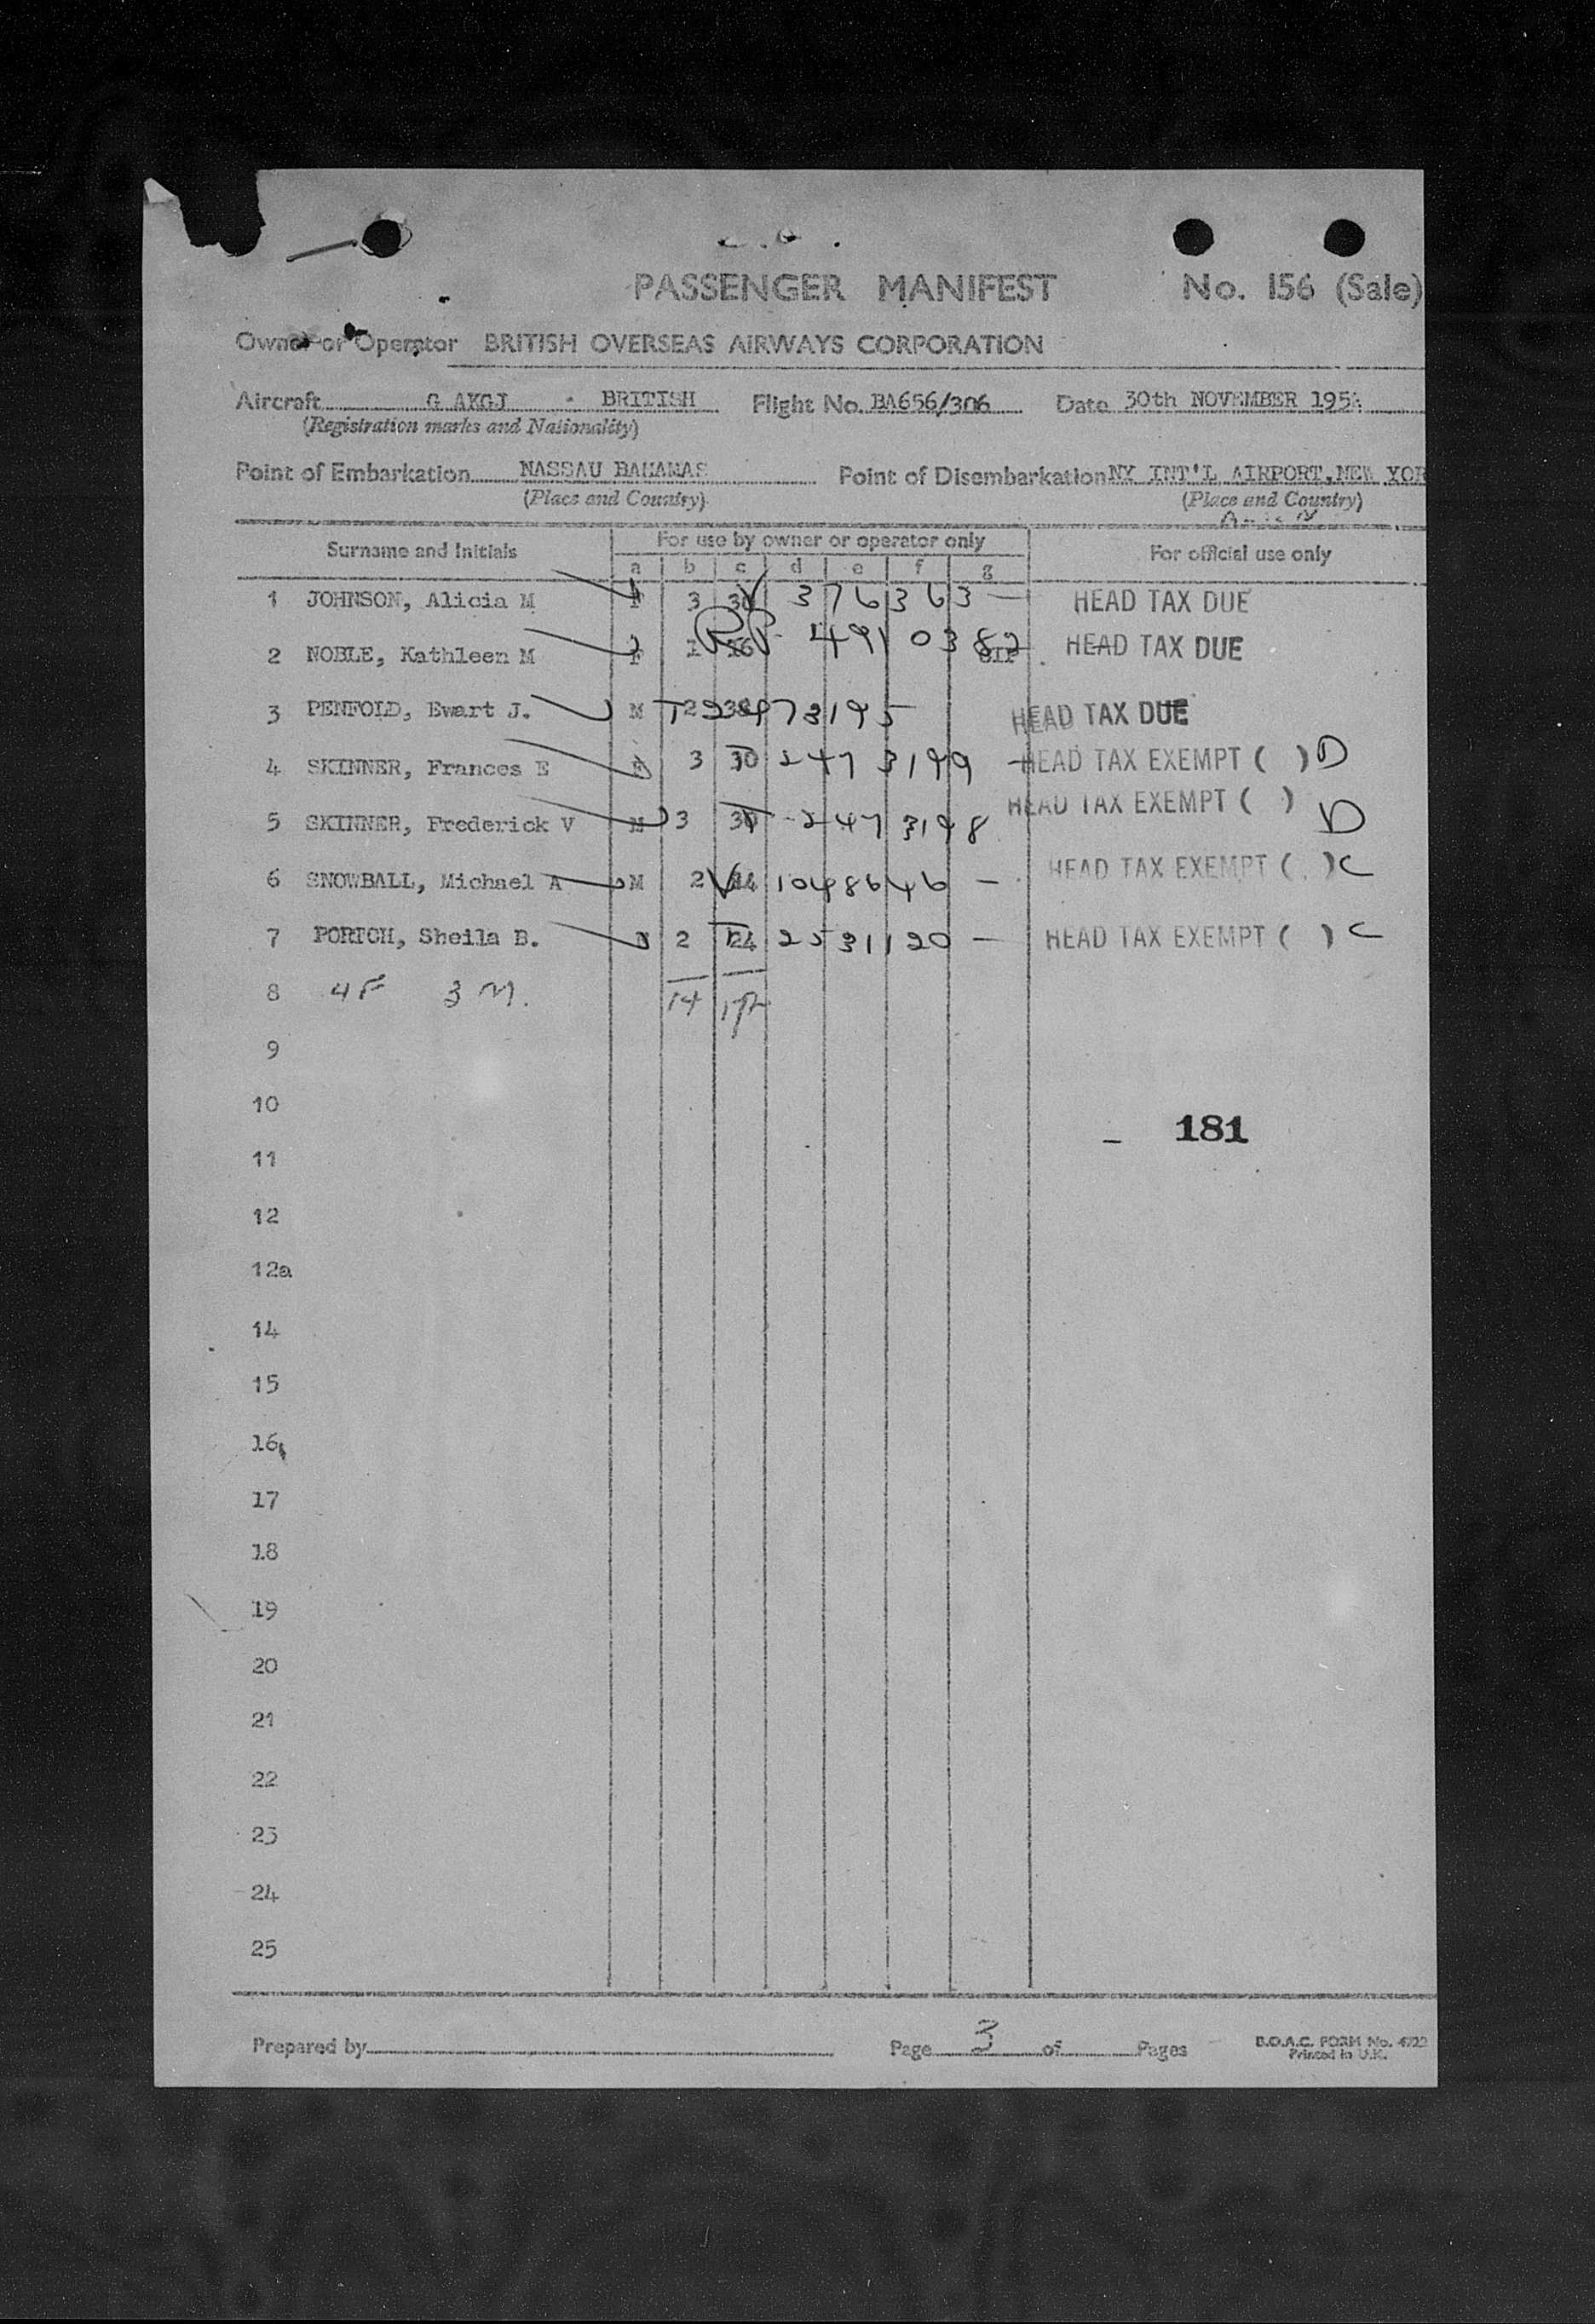 PASSENGER MANIFEST No. 156 (Sale)
Owner or Operator BRITISH OVERSEAS AIRWAYS CORPORATION
Aircraft G AKGJ - BRITISH Flight No. BA656/306 Date 30th NOVEMBER 1954
(Registration marks and Nationality)
Point of Embarkation NASSAU BAHAMAS Point of Disembarkation NY INT'L AIRPORT, NEW YOR
(Place and Country) (Place and Country)
Surname and Initials For use by owner or operator only For official use only
a b c d e f g
1 JOHNSON, Alicia M F 3 30 V 376363 — HEAD TAX DUE
2 NOBLE, Kathleen M F 1 16 HEAD TAX DUE
3 PENFOLD, Ewart J. M 2 T 2473195 HEAD TAX DUE
4 SKINNER, Frances E F 3 30 T 2473199 HEAD TAX EXEMPT ( ) D
5 SKINNER, Frederick V M 3 30 T 2473198 HEAD TAX EXEMPT ( ) D
6 SNOWBALL, Michael A M 2 V 1048646 — HEAD TAX EXEMPT ( ) C
7 PORTCH, Sheila B. 2 24 T 2531120 — HEAD TAX EXEMPT ( ) C
8 4F 3M. 14
9
10
181
11
12
12a
14
15
16
17
18
19
20
21
22
23
24
25
Prepared by Page 3 of Pages B.O.A.C. FORM No.
Printed in U.K.